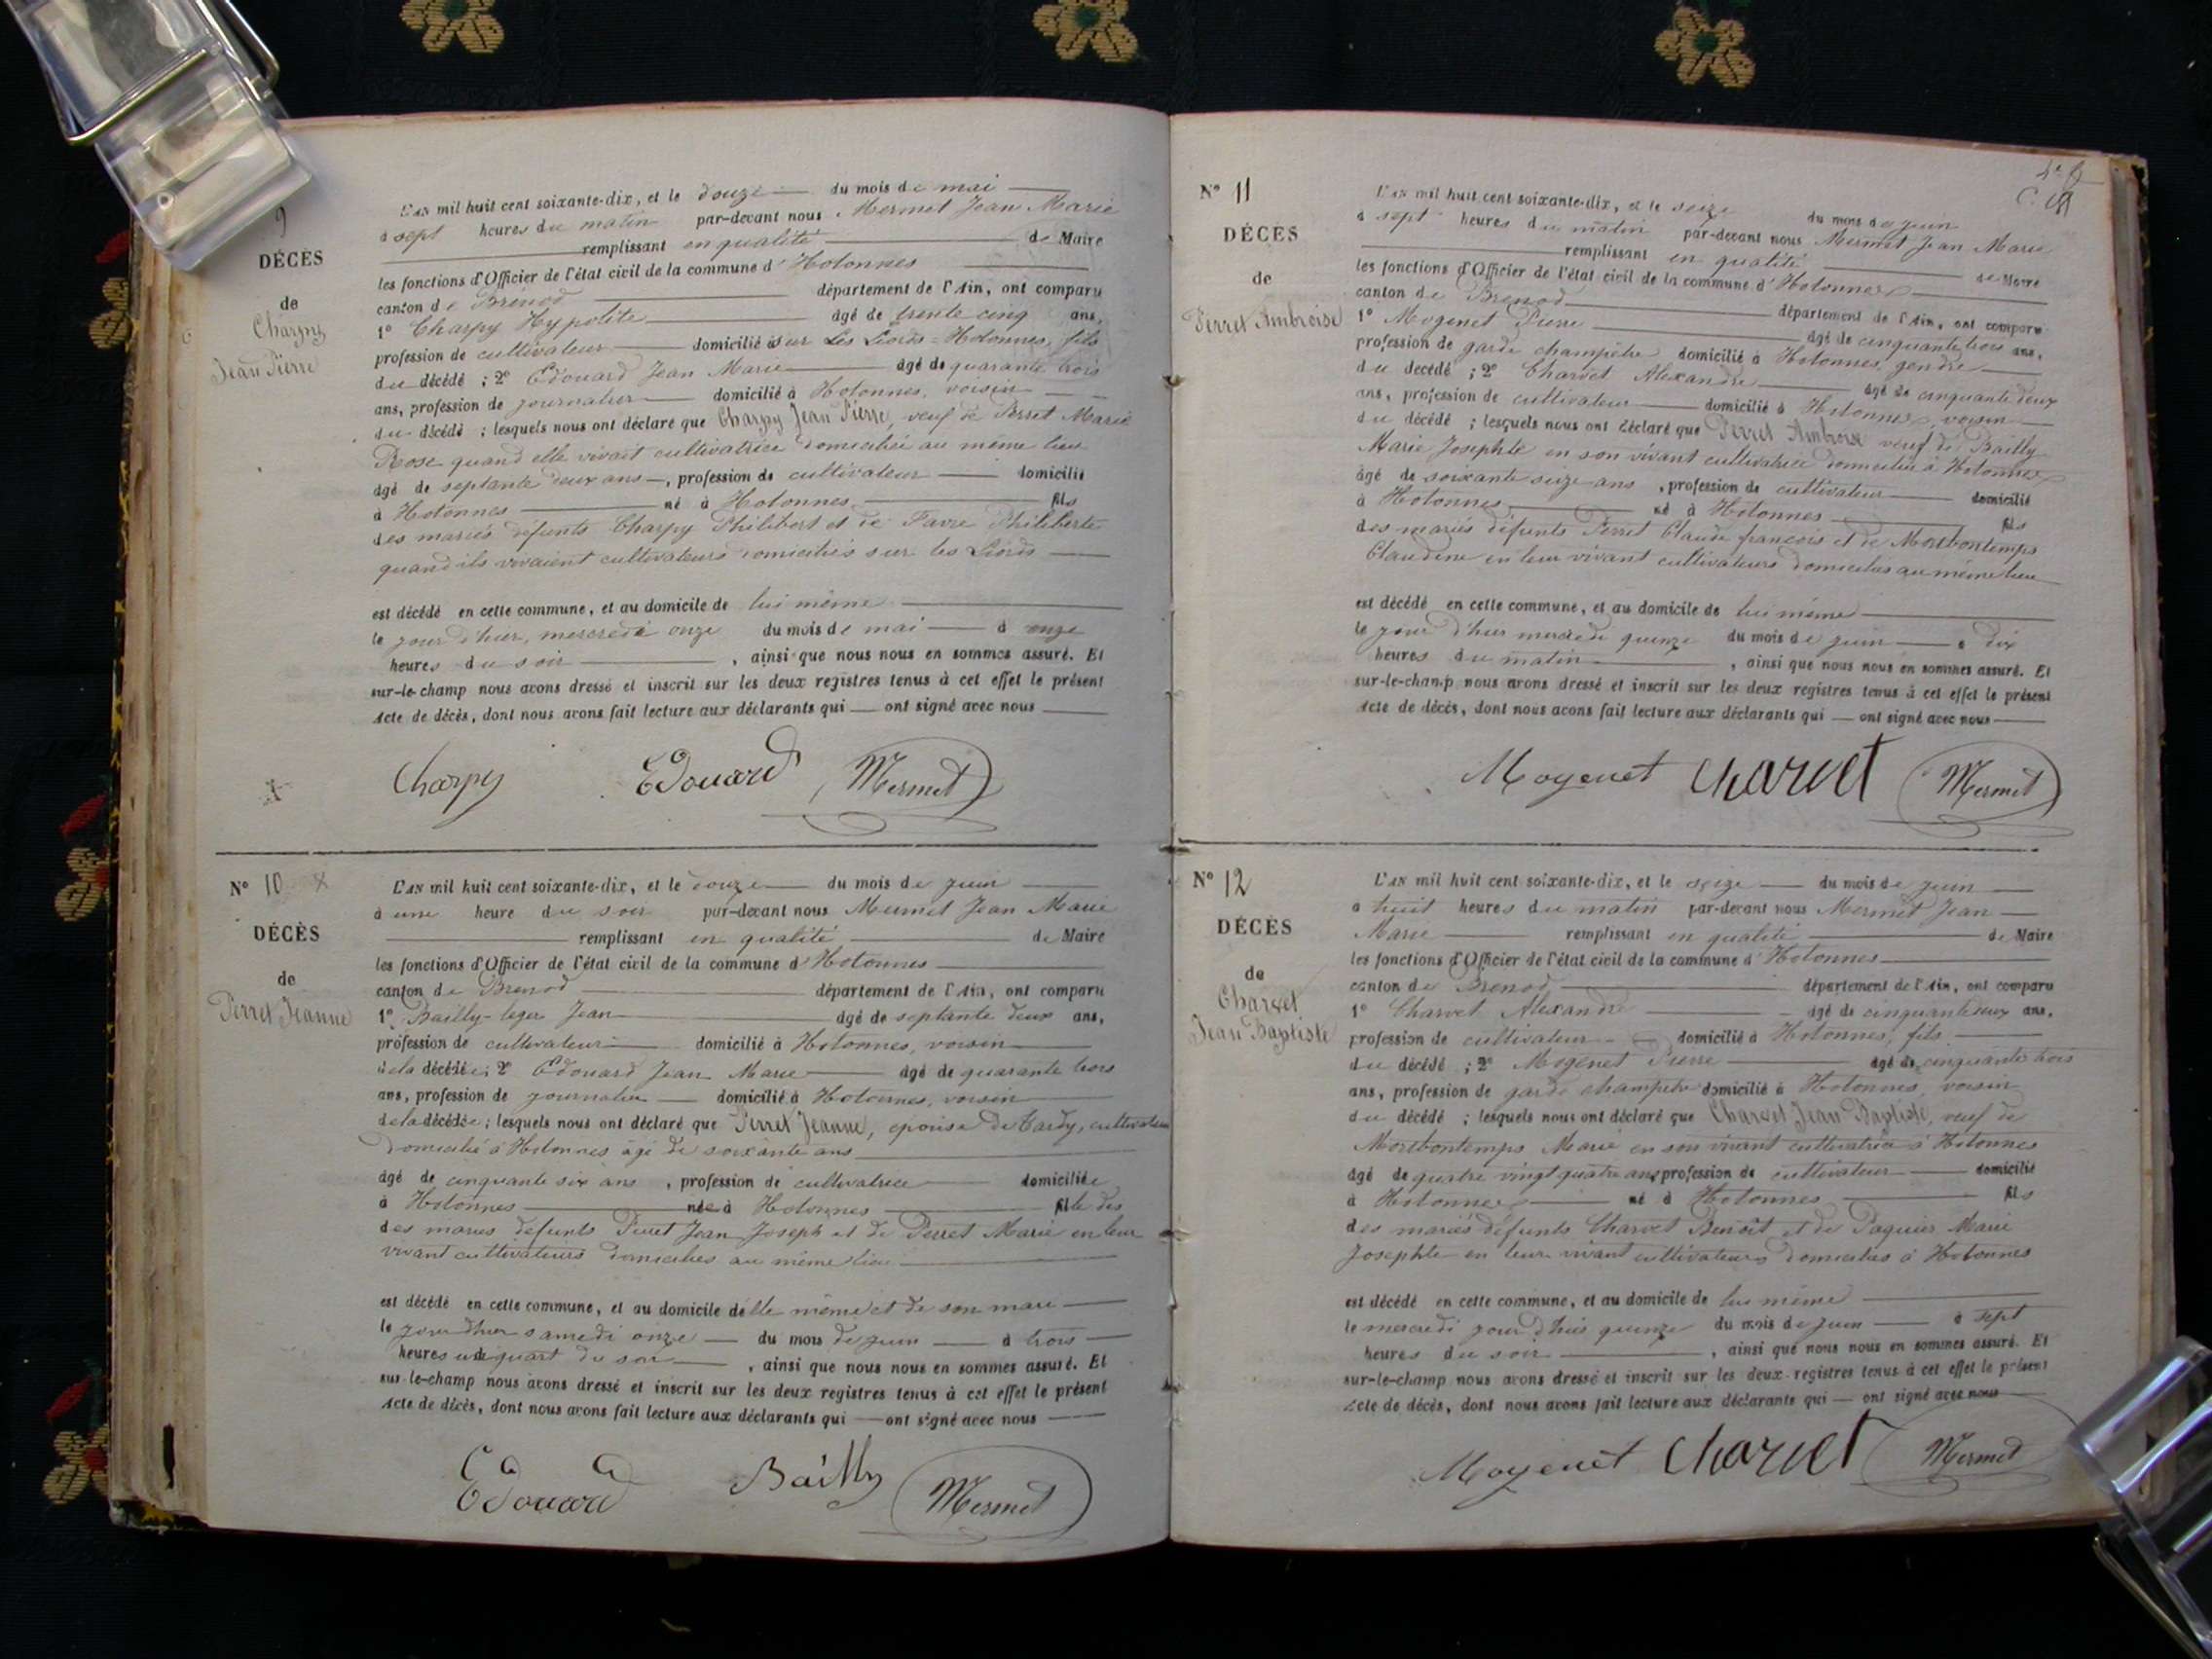 9
DÉCÈS
de
Charpy
Jean Pierre
L'AN mil huit cent soixante-dix, et le douze du mois de mai
à sept heures du matin par-devant nous Mermet Jean Marie
remplissant en qualité de Maire
les fonctions d'Officier de l'état civil de la commune d'Hotonnes
canton de Brénod département de l'Ain, ont comparu
1° Charpy Hypolite âgé de trente cinq ans,
profession de cultivateur domicilié à sur Les Liords = Hotonnes, fils
du décédé ; 2° Edouard Jean Marie âgé de quarante trois
ans, profession de journalier domicilié à Hotonnes, voisin
du décédé ; lesquels nous ont déclaré que Charpy Jean Pierre, veuf de Perret Marie
Rose quand elle vivait cultivatrice domiciliée au même lieu
âgé de septante deux ans, profession de cultivateur domicilié
à Hotonnes né à Hotonnes fils
des mariés défunts Charpy Philibert et de Favre Philiberte
quand ils vivaient cultivateurs domiciliés sur les Liords
est décédé en cette commune, et au domicile de lui même
le jour d'hier, mercredi onze du mois de mai à onze
heures du soir, ainsi que nous nous en sommes assuré. Et
sur-le-champ nous avons dressé et inscrit sur les deux registres tenus à cet effet le présent
Acte de décès, dont nous avons fait lecture aux déclarants qui — ont signé avec nous
Charpy Edouard Mermet
N° 10 X
DÉCÈS
de
Perret Jeanne
L'AN mil huit cent soixante-dix, et le douze du mois de juin
à une heure du soir par-devant nous Mermet Jean Marie
remplissant en qualité de Maire
les fonctions d'Officier de l'état civil de la commune d'Hotonnes
canton de Brenod département de l'Ain, ont comparu
1° Bailly-leger Jean âgé de septante deux ans,
profession de cultivateur domicilié à Hotonnes, voisin
de la décédée ; 2° Edouard Jean Marie âgé de quarante trois
ans, profession de journalier domicilié à Hotonnes, voisin
de la décédée ; lesquels nous ont déclaré que Perret Jeanne, épouse de Tardy, cultivateur
domicilié à Hotonnes âgé de soixante ans
âgé de cinquante six ans, profession de cultivatrice domiciliée
à Hotonnes née à Hotonnes fille des
des mariés defunts Perret Jean Joseph et de Perret Marie en leur
vivant cultivateurs domiciliés au même lieu
est décédé en cette commune, et au domicile d'elle même et de son mari
le jour d'hier samedi onze du mois de juin à trois
heures un quart du soir, ainsi que nous nous en sommes assuré. Et
sur-le-champ nous avons dressé et inscrit sur les deux registres tenus à cet effet le présent
Acte de décès, dont nous avons fait lecture aux déclarants qui — ont signé avec nous
Edouard Bailly Mermet
N° 11
DÉCÈS
de
Perret Ambroise
L'AN mil huit cent soixante-dix, et le seize du mois de juin
à sept heures du matin par-devant nous Mermet Jean Marie
remplissant en qualité de Maire
les fonctions d'Officier de l'état civil de la commune d'Hotonnes
canton de Brenod département de l'Ain, ont comparu
1° Mogenet Pierre âgé de cinquante trois ans,
profession de garde champêtre domicilié à Hotonnes, gendre
du décédé ; 2° Charvet Alexandre âgé de cinquante deux
ans, profession de cultivateur domicilié à Hotonnes, voisin
du décédé ; lesquels nous ont déclaré que Perret Ambroise veuf de Bailly
Marie Josephte en son vivant cultivatrice domiciliée à Hotonnes
âgé de soixante seize ans, profession de cultivateur domicilié
à Hotonnes né à Hotonnes fils
des mariés défunts Perret Claude françois et de Montbontemps
Claudine en leur vivant cultivateurs domiciliés au même lieu
est décédé en cette commune, et au domicile de lui même
le jour d'hier mercredi quinze du mois de juin à dix
heures du matin, ainsi que nous nous en sommes assuré. Et
sur-le-champ nous avons dressé et inscrit sur les deux registres tenus à cet effet le présent
Acte de décès, dont nous avons fait lecture aux déclarants qui — ont signé avec nous
Mogenet Charvet Mermet
N° 12
DÉCÈS
de
Charvet
Jean Baptiste
L'AN mil huit cent soixante-dix, et le seize du mois de juin
à huit heures du matin par-devant nous Mermet Jean
Marie remplissant en qualité de Maire
les fonctions d'Officier de l'état civil de la commune d'Hotonnes
canton de Brenod département de l'Ain, ont comparu
1° Charvet Alexandre âgé de cinquante deux ans,
profession de cultivateur domicilié à Hotonnes, fils
du décédé ; 2° Mogenet Pierre âgé de cinquante trois
ans, profession de garde champetre domicilié à Hotonnes, voisin
du décédé ; lesquels nous ont déclaré que Charvet Jean Baptiste, veuf de
Montbontemps Marie en son vivant cultivatrice à Hotonnes
âgé de quatre vingt quatre ans, profession de cultivateur domicilié
à Hotonnes né à Hotonnes fils
des mariés défunts Charvet Benoît et de Paquier Marie
Josephte en leur vivant cultivateurs domiciliés à Hotonnes
est décédé en cette commune, et au domicile de lui même
le mercredi jour d'hier quinze du mois de juin à sept
heures du soir, ainsi que nous nous en sommes assuré. Et
sur-le-champ nous avons dressé et inscrit sur les deux registres tenus à cet effet le présent
Acte de décès, dont nous avons fait lecture aux déclarants qui — ont signé avec nous
Mogenet Charvet Mermet